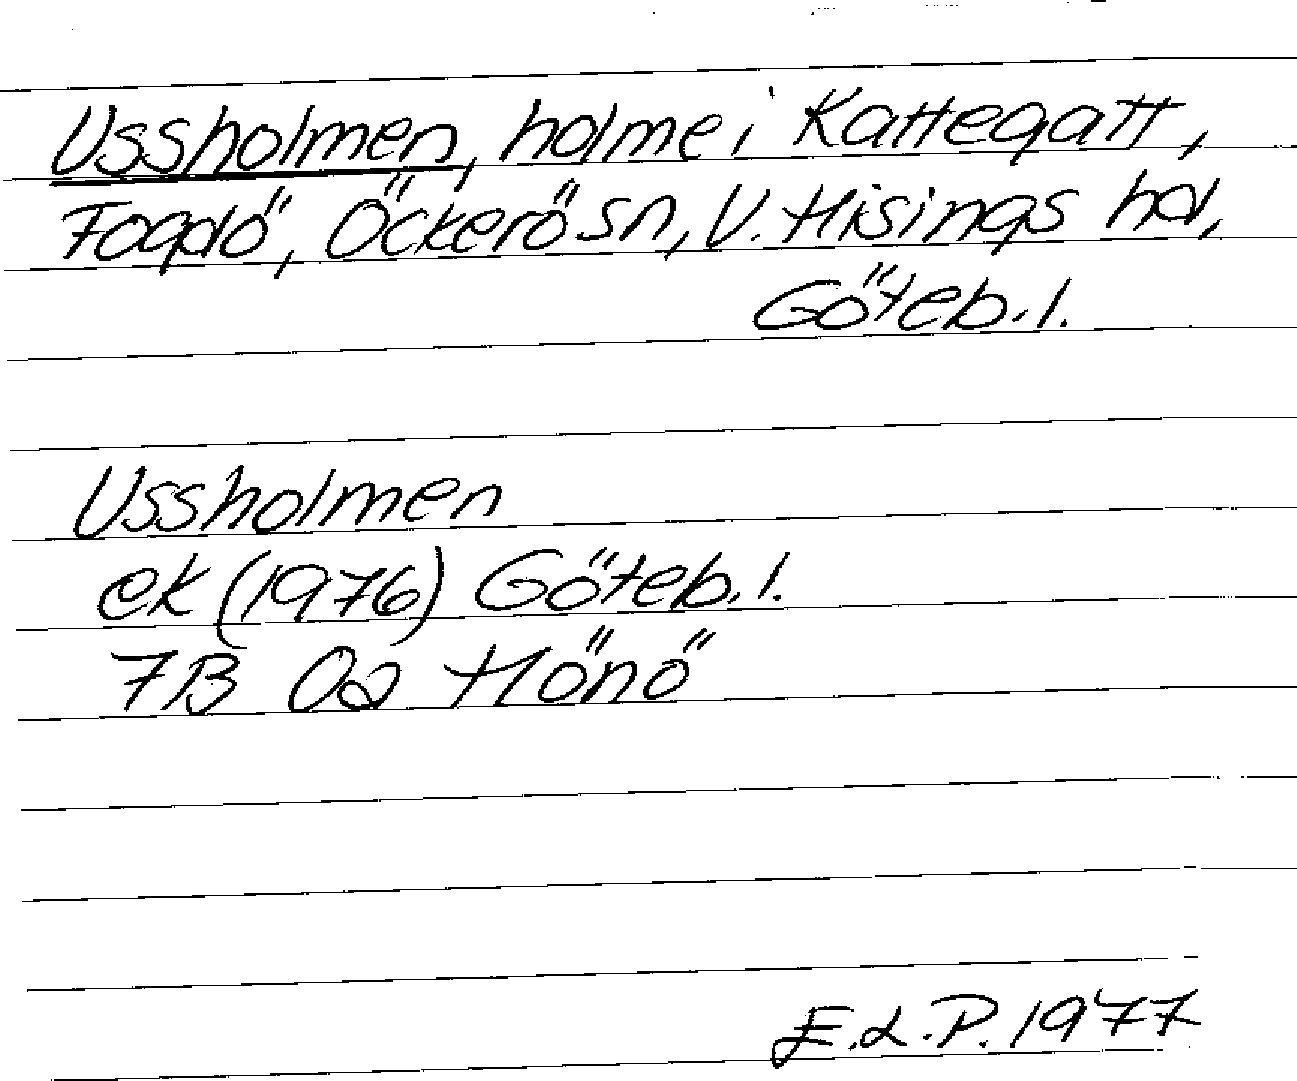 Ussholmen, holme i Kattegatt,
Fogdö, Öckerö sn, V. Hisings hd,
Göteb. l.
Ussholmen
ek (1976) Göteb. l.
7B 0a Hönö
E.L.P. 1977